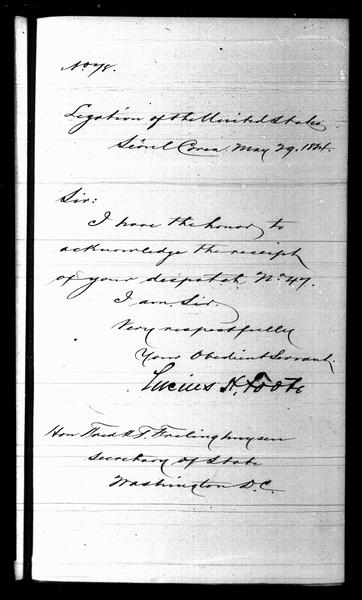 No 78.
Legation of the United States
Séoul Corea. May 29. 1884.
Sir:
I have the honor to
acknowledge the receipt
of your despatch No 47.
I am Sir
Very respectfully
Your Obedient Servant.
Lucius H. Foote
Hon Fred k T. Frelinghuysen
Secretary of State
Washington D.C.